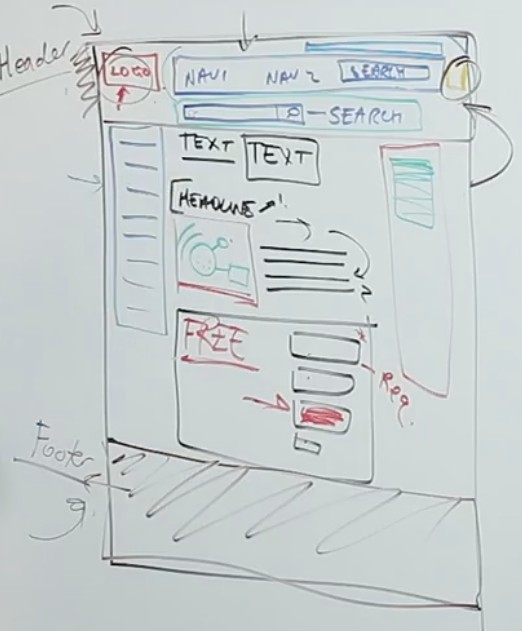 Header
LOGO
NAV1 NAV 2 SEARCH
SEARCH
TEXT TEXT
HEADLINE
FREE
Req.
Footer